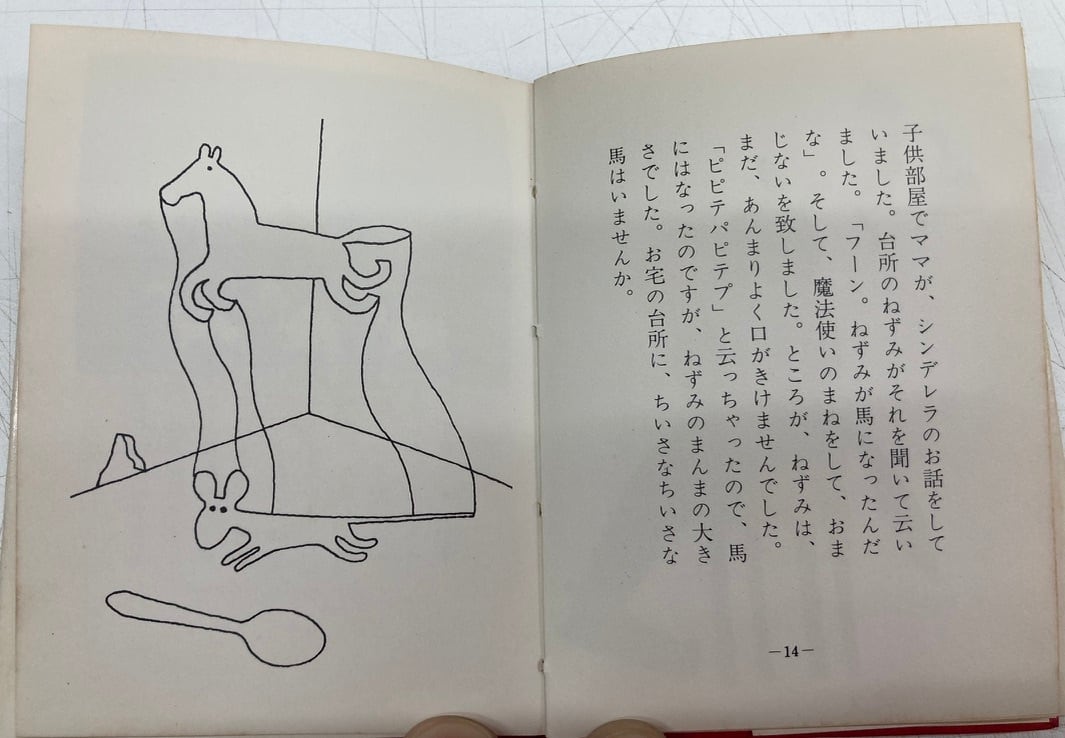 子供部屋でママが、シンデレラのお話をして
いました。台所のねずみがそれを聞いて云い
ました。「フーン。ねずみが馬になったんだ
な」。そして、魔法使いのまねをして、おま
じないを致しました。ところが、ねずみは、
まだ、あんまりよく口がきけませんでした。
「ピピテパピテプ」と云っちゃったので、馬
にはなったのですが、ねずみのまんまの大き
さでした。お宅の台所に、ちいさなちいさな
馬はいませんか。
—14—